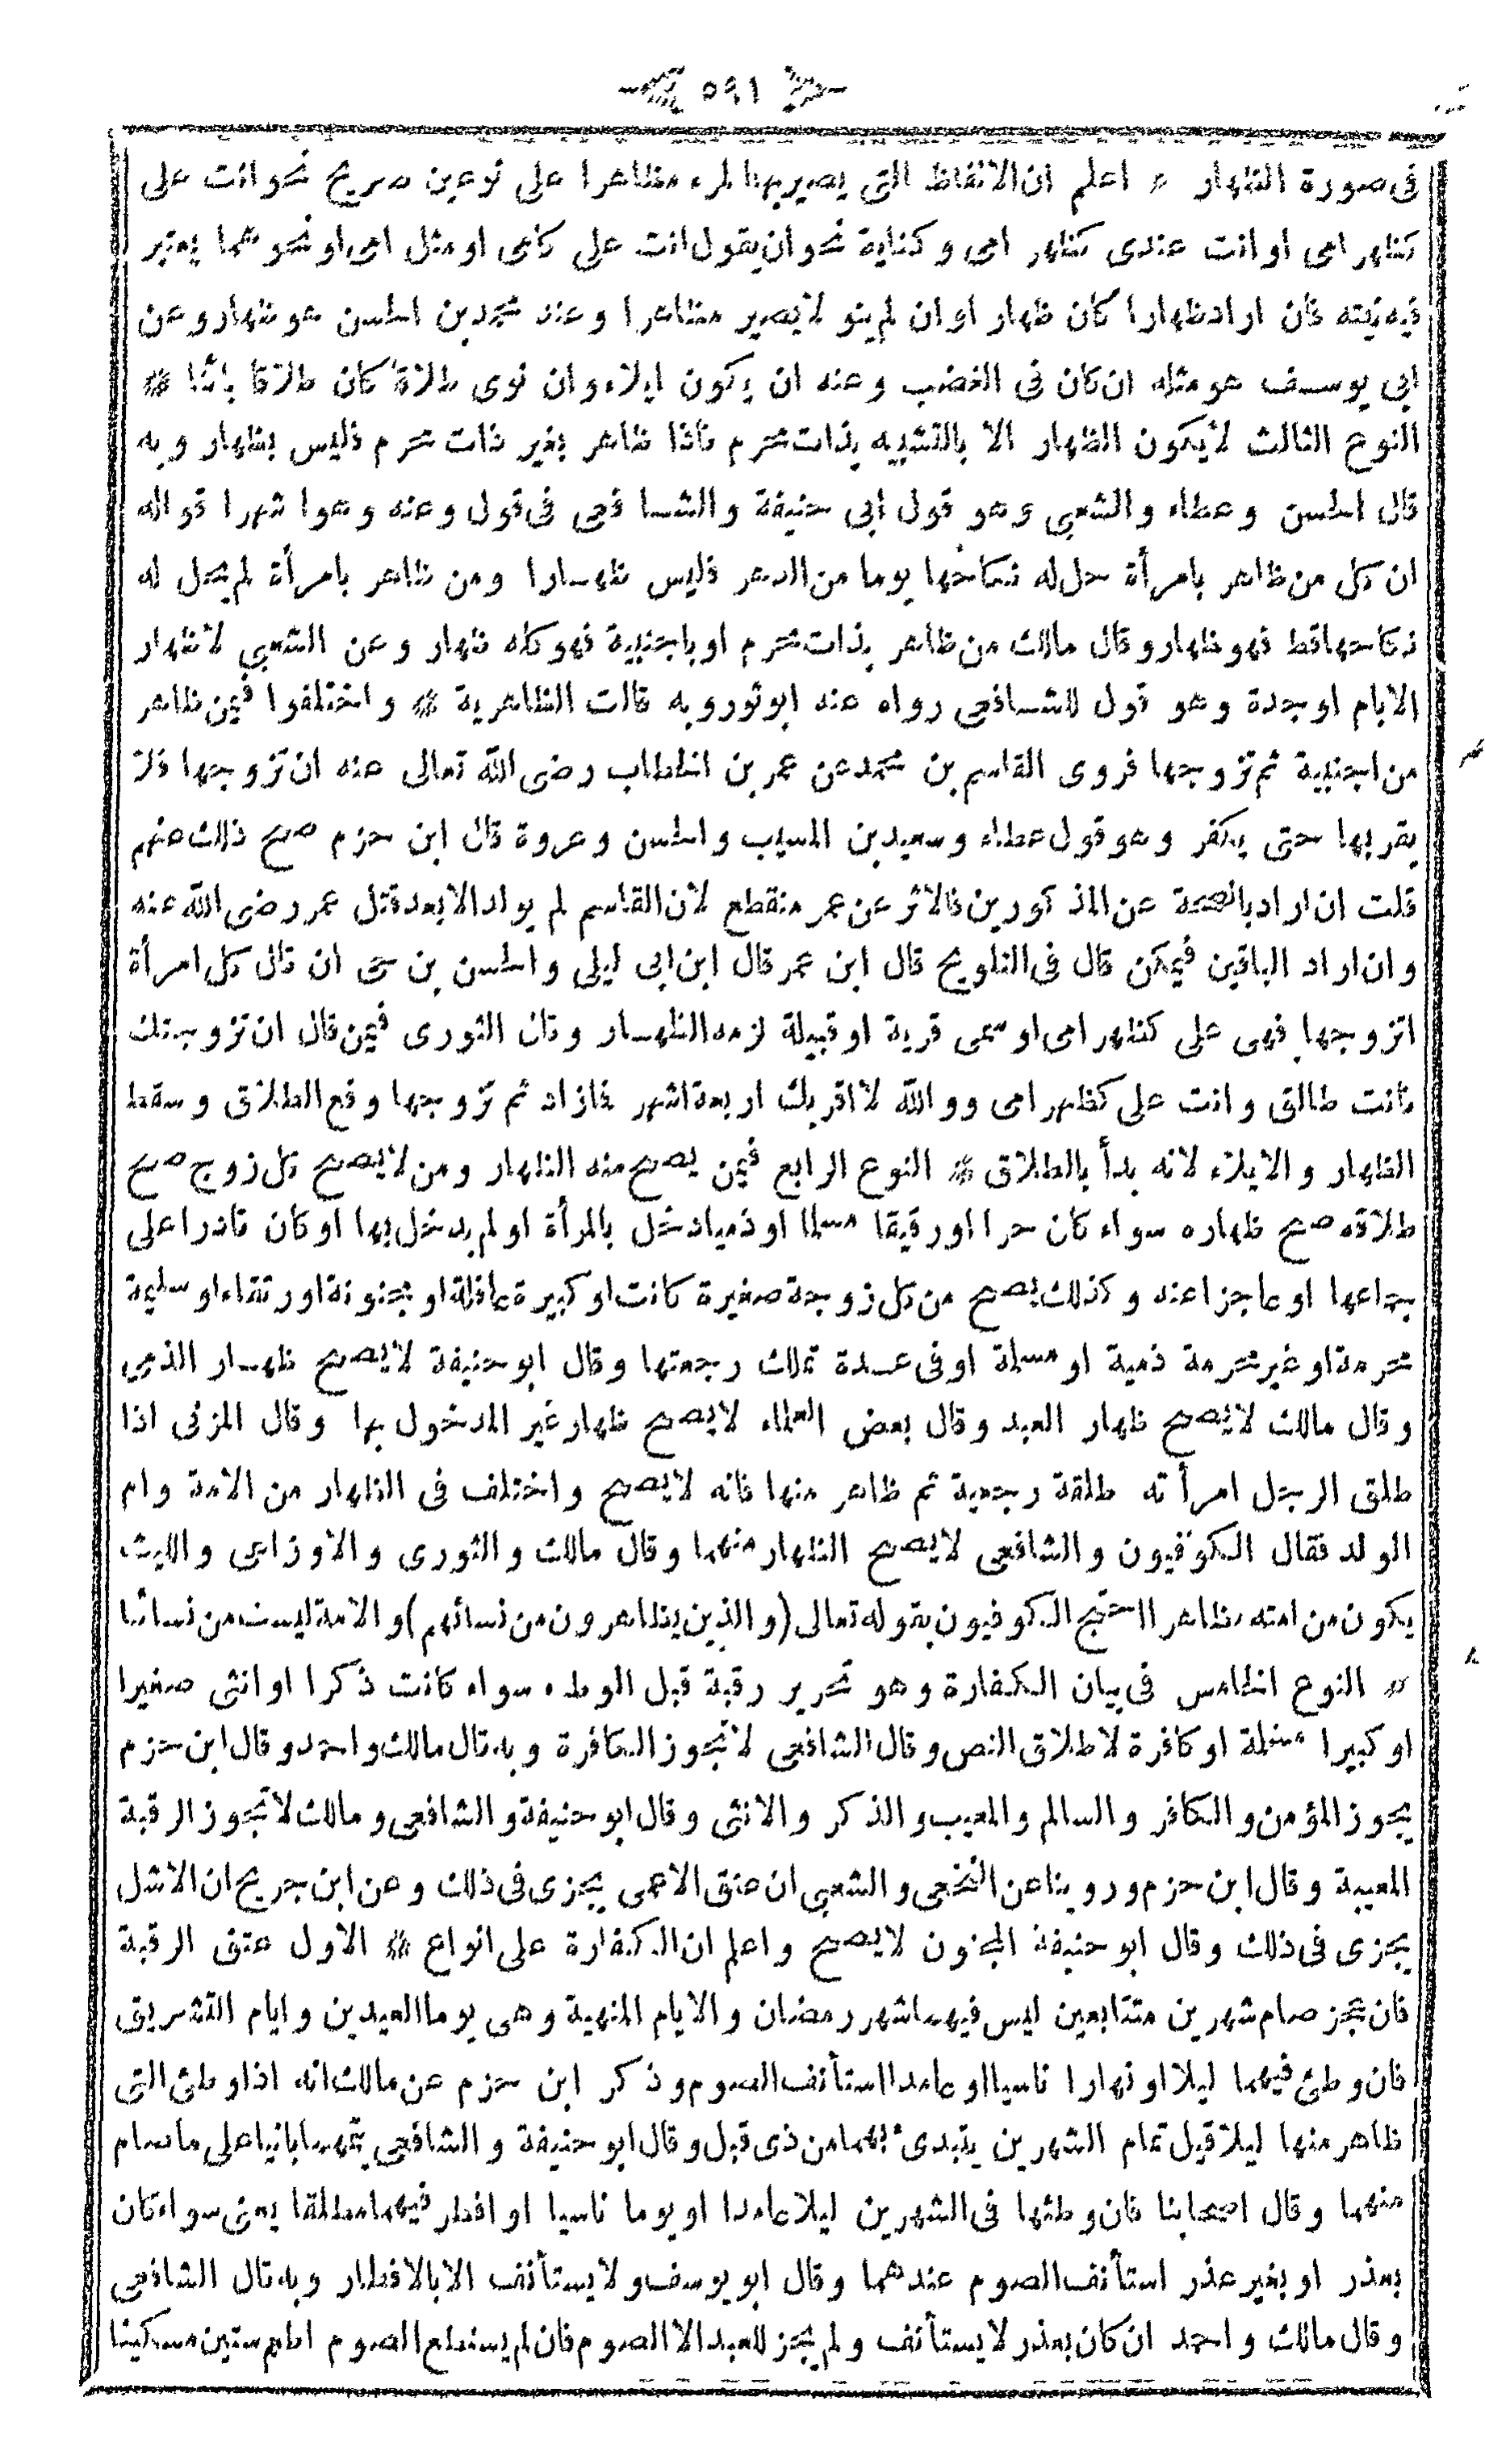 ٥٩١
فى صورة الظهار * اعلم ان الالفاظ التى يصير بها المرء مظاهرا على نوعين صريح نحو انت على
كظهر امى او انت عندى كظهر امى وكناية نحو ان يقول انت على كامى او مثل امى او نحوهما يعتبر
فيه نيته فان اراد ظهارا كان ظهار او ان لم ينو لا يصير مظاهرا وعند محمد بن الحسن هو ظهار وعن
ابى يوسف هو مثله ان كان فى الغضب وعنه ان يكون ايلاء وان نوى طلاقا كان طلاقا بائنا *
النوع الثالث لا يكون الظهار الا بالتشبيه بذات محرم فاذا ظاهر بغير ذات محرم فليس بظهار وبه
قال الحسن وعطاء والشعبى وهو قول ابى حنيفة والشافعى فى قول وعنه وهوا شهرا قواله
ان كل من ظاهر بامرأة حل له نكاحها يوما من الدهر فليس ظهارا ومن ظاهر بامرأة لم يحل له
نكاحها قط فهو ظهار وقال مالك من ظاهر بذات محرم او باجنبية فهو كله ظهار وعن الشعبى لا ظهار
الا بام او جدة وهو قول للشافعى رواه عنه ابو ثور وبه قالت الظاهرية * واختلفوا فيمن ظاهر
من اجنبية ثم تزوجها فروى القاسم بن محمد عن عمر بن الخطاب رضى الله تعالى عنه ان تزوجها فلا
يقربها حتى يكفر وهو قول عطاء وسعيد بن المسيب والحسن وعروة قال ابن حزم صح ذلك عنهم
قلت ان اراد بالصحة عن المذكورين فالاثر عن عمر منقطع لان القاسم لم يولد الا بعد قتل عمر رضى الله عنه
وان اراد الباقين فيمكن قال فى التلويح قال ابن عمر قال ابن ابى ليلى والحسن بن حى ان قال كل امرأة
اتزوجها فهى على كظهر امى او سمى قرية او قبيلة لزمه الظهار وقال الثورى فيمن قال ان تزوجتك
فانت طالق وانت على كظهر امى ووالله لا اقربك اربعة اشهر فمازاد ثم تزوجها وقع الطلاق وسقط
الظهار والايلاء لانه بدأ بالطلاق * النوع الرابع فيمن يصح منه الظهار ومن لا يصح كل زوج صح
طلاقه صح ظهاره سواء كان حرا اور قيقا مسلما او ذميا دخل بالمرأة او لم يدخل بها او كان قادرا على
جماعها او عاجزا عنه وكذلك يصح من كل زوجة صغيرة كانت او كبيرة عاقلة او مجنونة او رتقاء او سليمة
محرمة او غير محرمة ذمية او مسلمة او فى عدة تملك رجعتها وقال ابو حنيفة لا يصح ظهار الذمى
وقال مالك لا يصح ظهار العبد وقال بعض العلماء لا يصح ظهار غير المدخول بها وقال المزنى اذا
طلق الرجل امرأته طلقة رجعية ثم ظاهر منها فانه لا يصح واختلف فى الظهار من الامة وام
الولد فقال الكوفيون والشافعى لا يصح الظهار منهما وقال مالك والثورى والاوزاعى والليث
يكون من امته مظاهرا احتج الكوفيون بقوله تعالى (والذين يظاهرون من نسائهم) والامة ليست من نسائنا
* النوع الخامس فى بيان الكفارة وهو تحرير رقبة قبل الوطء سواء كانت ذكرا او انثى صغيرا
او كبيرا مسلمة او كافرة لاطلاق النص وقال الشافعى لا تجوز الكافرة وبه قال مالك واحمد وقال ابن حزم
يجوز المؤمن والكافر والسالم والمعيب والذكر والانثى وقال ابو حنيفة والشافعى ومالك لا تجوز الرقبة
المعيبة وقال ابن حزم وروينا عن النخعى والشعبى ان عتق الاعمى يجزى فى ذلك وعن ابن جريج ان الاشل
يجزى فى ذلك وقال ابو حنيفة المجنون لا يصح واعلم ان الكفارة على انواع * الاول عتق الرقبة
فان عجز صام شهرين متتابعين ليس فيهما شهر رمضان والايام المنهية وهى يوما العيدين وايام التشريق
فان وطئ فيهما ليلا او نهارا ناسيا او عامدا استأنف الصوم وذكر ابن حزم عن مالك انه اذا وطئ التى
ظاهر منها ليلا قبل تمام الشهرين يبتدئ بهما من ذى قبل وقال ابو حنيفة والشافعى يتمهما بانيا على ما صام
منهما وقال اصحابنا فان وطئها فى الشهرين ليلا عامدا او يوما ناسيا او افطر فيهما مطلقا يعنى سواء كان
بعذر او بغير عذر استأنف الصوم عندهما وقال ابو يوسف ولا يستأنف الا بالافطار وبه قال الشافعى
وقال مالك واحمد ان كان بعذر لا يستأنف ولم يجز للعبد الا الصوم فان لم يستطع الصوم اطعم ستين مسكينا